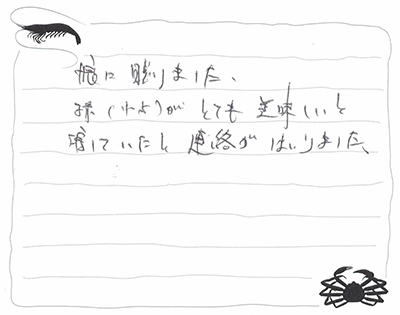 娘に贈りました、
孫()がとても美味しいと
していたと連絡がはいりました、